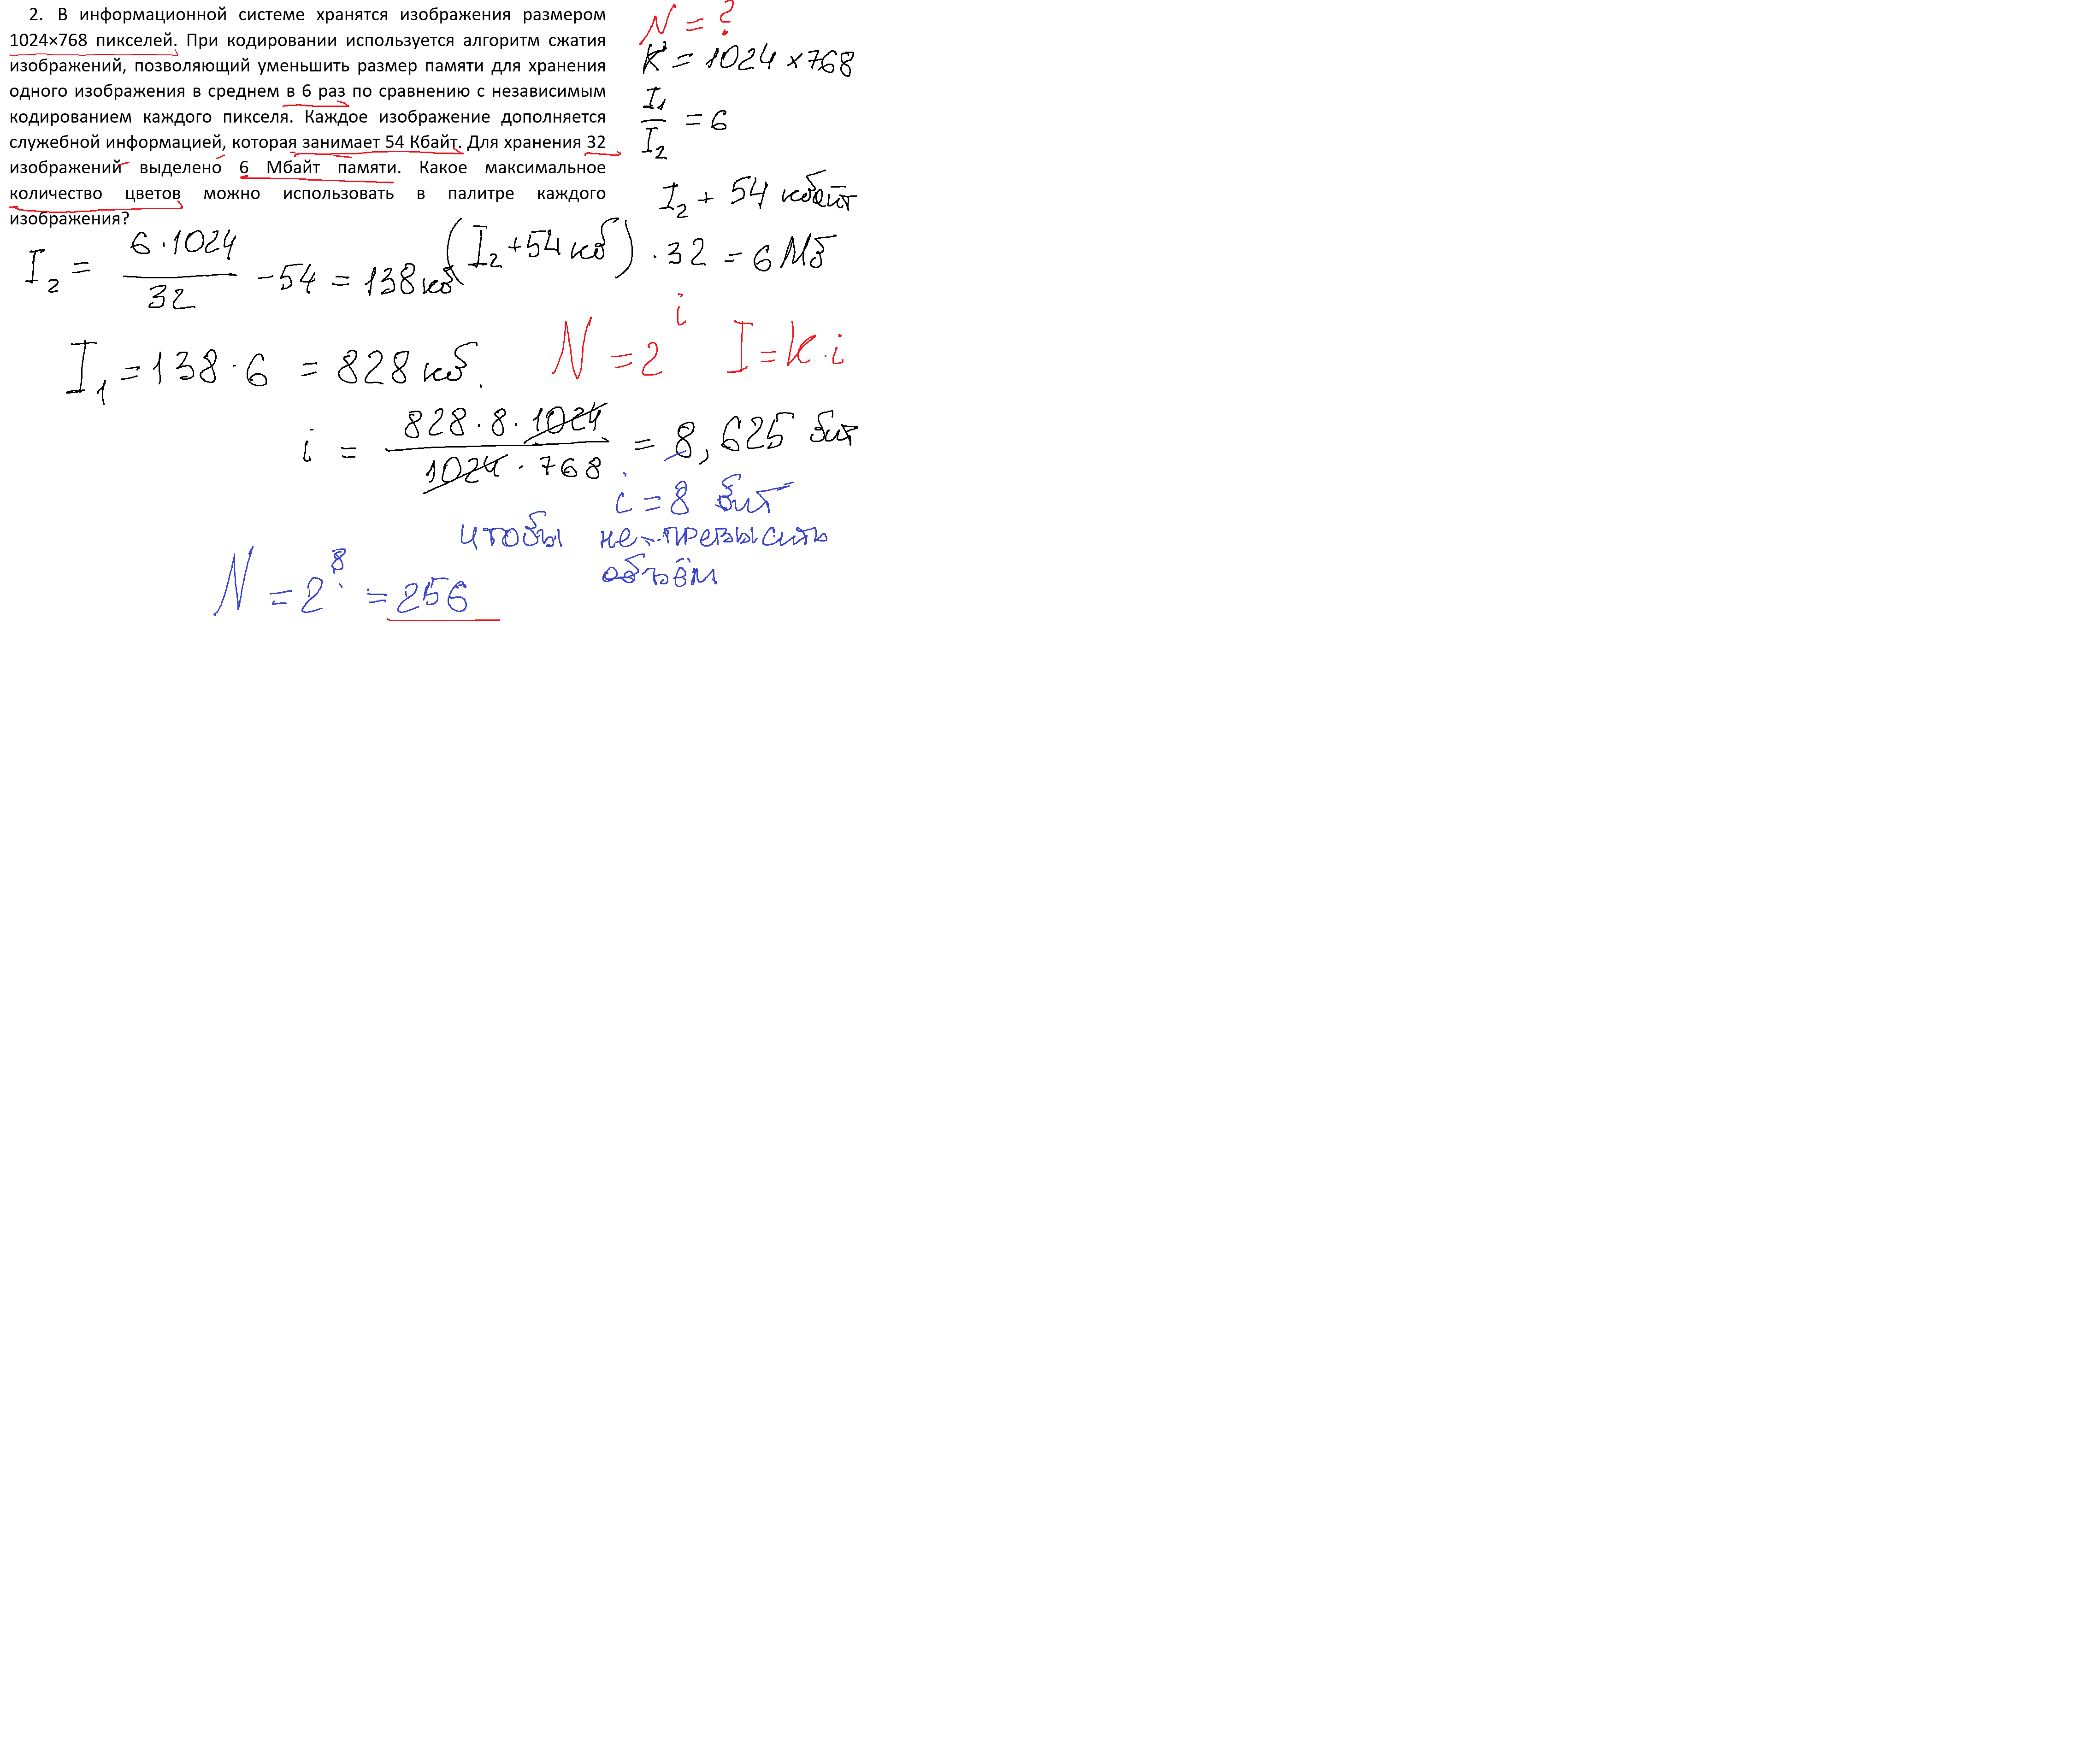 2. В информационной системе хранятся изображения размером
1024×768 пикселей. При кодировании используется алгоритм сжатия
изображений, позволяющий уменьшить размер памяти для хранения
одного изображения в среднем в 6 раз по сравнению с независимым
кодированием каждого пикселя. Каждое изображение дополняется
служебной информацией, которая занимает 54 Кбайт. Для хранения 32
изображений выделено 6 Мбайт памяти. Какое максимальное
количество цветов можно использовать в палитре каждого
изображения?
N = ?
K = 1024 × 768
I₁ / I₂ = 6
I₂ + 54 кбайт
(I₂ + 54 кб) · 32 = 6 Мб
I₂ = 6 · 1024 / 32 − 54 = 138 кб
I₁ = 138 · 6 = 828 кб.
N = 2^i I = K · i
i = 828 · 8 · 1024 / 1024 · 768 = 8,625 бит
i = 8 бит
чтобы не превысить
объём
N = 2^8 = 256